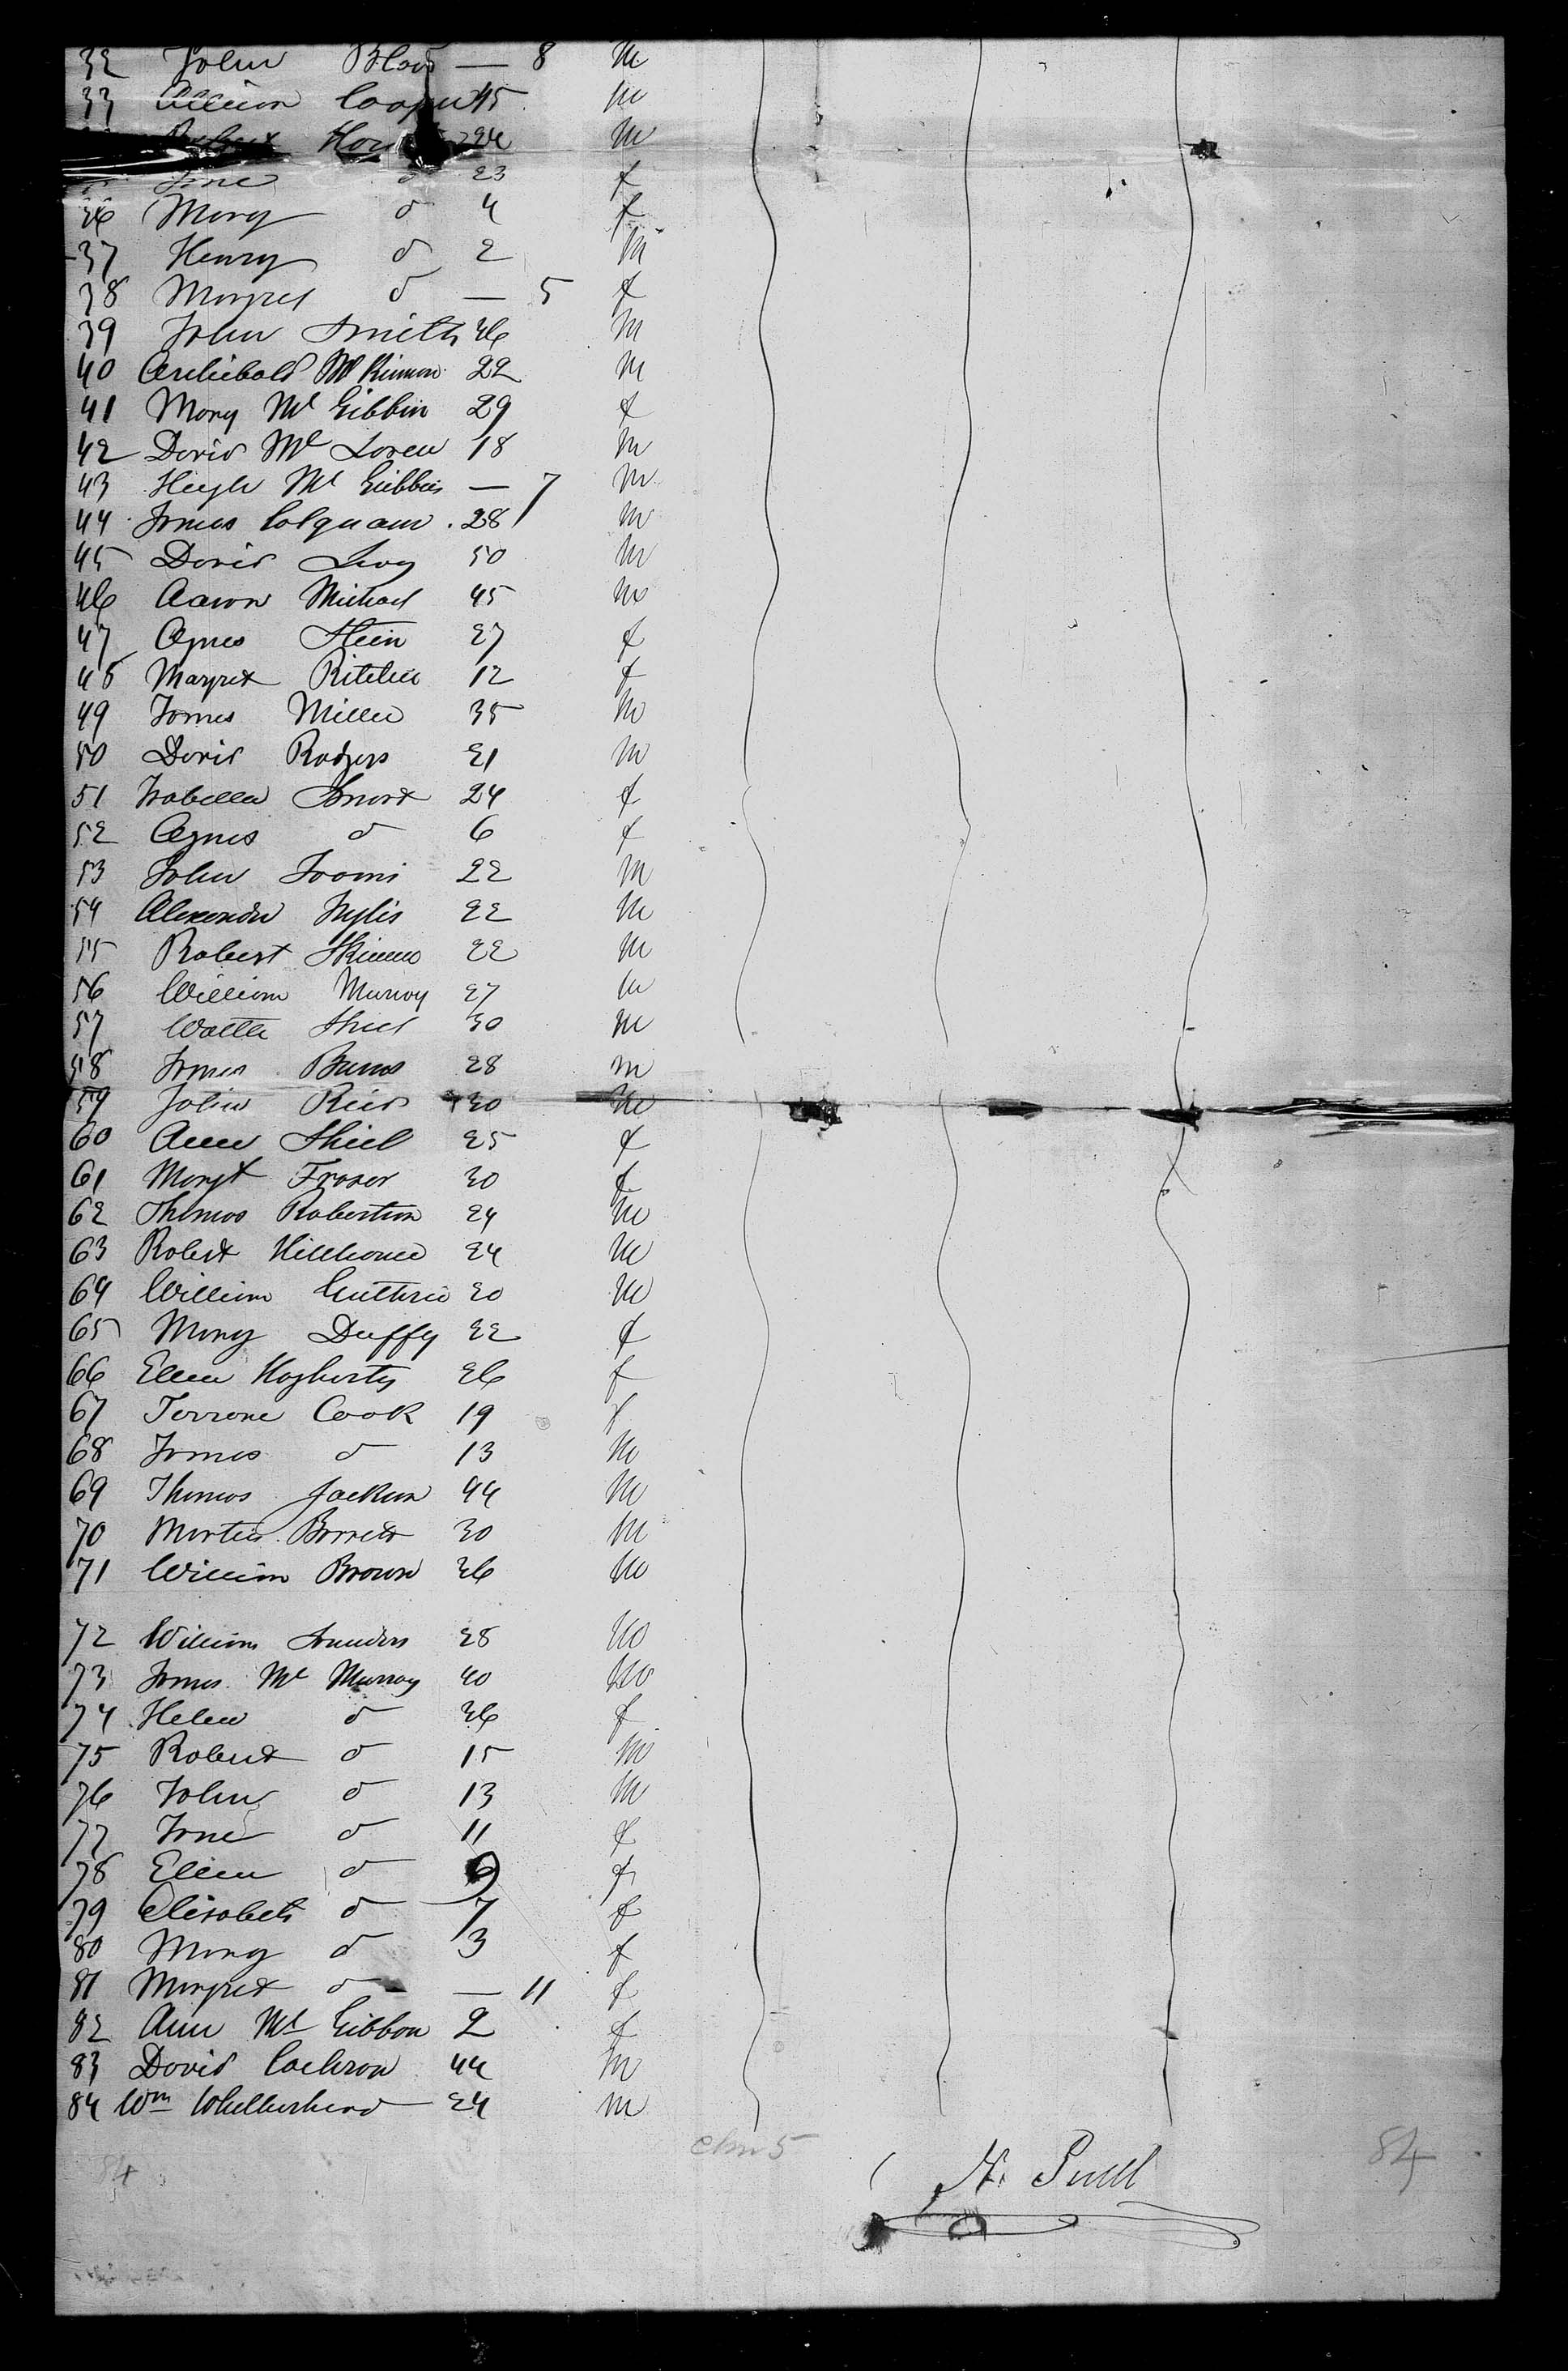 32 John Blair — 8 m
33 William Cooper 45 m
Robert 24 m
Jane d 23 f
36 Mary d 4 f
37 Henry d 2 m
38 Margret d — 5 f
39 John Smith 36 m
40 Archibald Mc Kinnon 22 m
41 Mary Mc Gibbin 29 f
42 David Mc Laren 18 m
43 Hugh Mc Gibbin — 7 m
44 James Colquam . 28 m
45 David Levy 50 m
46 Aaron Michael 45 m
47 Agnes Stein 27 f
48 Margret Ritchie 12 f
49 James Miller 35 m
50 David Rodgers 21 m
51 Isabella Smart 24 f
52 Agnes d 6 f
53 John 22 m
54 Alexander Inglis 22 m
55 Robert Skinner 22 m
56 William Murray 27 m
57 Walter Shiel 30 m
58 James Burns 28 m
59 John Reid 30 m
60 Ann Shiel 25 f
61 Margt Fraser 30 f
62 Thomas Robertson 24 m
63 Robert Hillhouse 24 m
64 William Guthrie 20 m
65 Mary Duffy 22 f
66 Ellen Hagherty 26 f
67 Cook 19 f
68 James d 13 m
69 Thomas Jackson 44 m
70 Martin Barrett 30 m
71 William Brown 36 m
72 William Saunders 28 m
73 James Mc Murray 40 m
74 Helen d 36 f
75 Robert d 15 m
76 John d 13 m
77 Jane d 11 f
78 Ellen d 9 f
79 Elisabeth d 7 f
80 Mary d 3 f
81 Margret d — 11 f
82 Ann Mc Gibbon 2 f
83 David Cochran 44 m
84 Wm Whetherhead 24 m
84 84